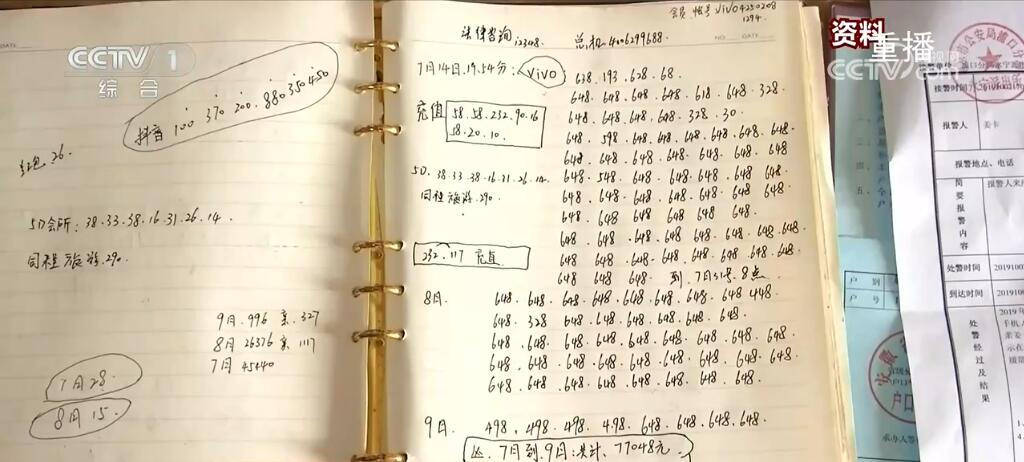 CCTV 1
综合
资料
重播
CCTV.com
DATE
抖音 100 370 200 880 350 450
红包 26
5D会所: 38.33.38.16.31.26.14.
同程旅游.290.
9月.996 京.327
8月 26376 京 117
7月 45440
7月28.
8月15.
会员.帐号VIVO4250208
1294.
法律咨询12348. 总机4006299688.
NO. DATE.
7月14日.19.54分: VIVO 638.193.628.68.
648.648.648.648.618.648.328.
充值 58.58.232.90.16 648.648.648.648.328.30.
58.20.10. 648.598.648.648.648.648.648.648.
648.648.648.648.648.648.648
5D.38.33.38.16.31.26.14. 648.548.648.648.648.648.648
同程旅游.290. 648.648.648.648.648.648.648.
648.648.648.648.648.648.
648.648.648.648.648.648.648.648.
232.117 充值 648.648.648.648.648.648.648.648.
648 648 648. 到7月31号.8点
8月. 648.648.648.648.648.648.648.648 448.
648.328 648.648.648.648.648.648.
648.648.648.648.648.648.648.648.648.
648.648.648.648.648.648.648.648.648.
648.648.648.648.648.648.648.648.
9月. 498.498.498.498.648.648.648.648.
7月到.9月:共计.77048元.
接警时间
报警人 姜卡
报警地点、电话
简要报警内容
报警人来
处警时间 201910
到达时间 201910
处警经过及结果
2019年
户别
户号
户口
承办人